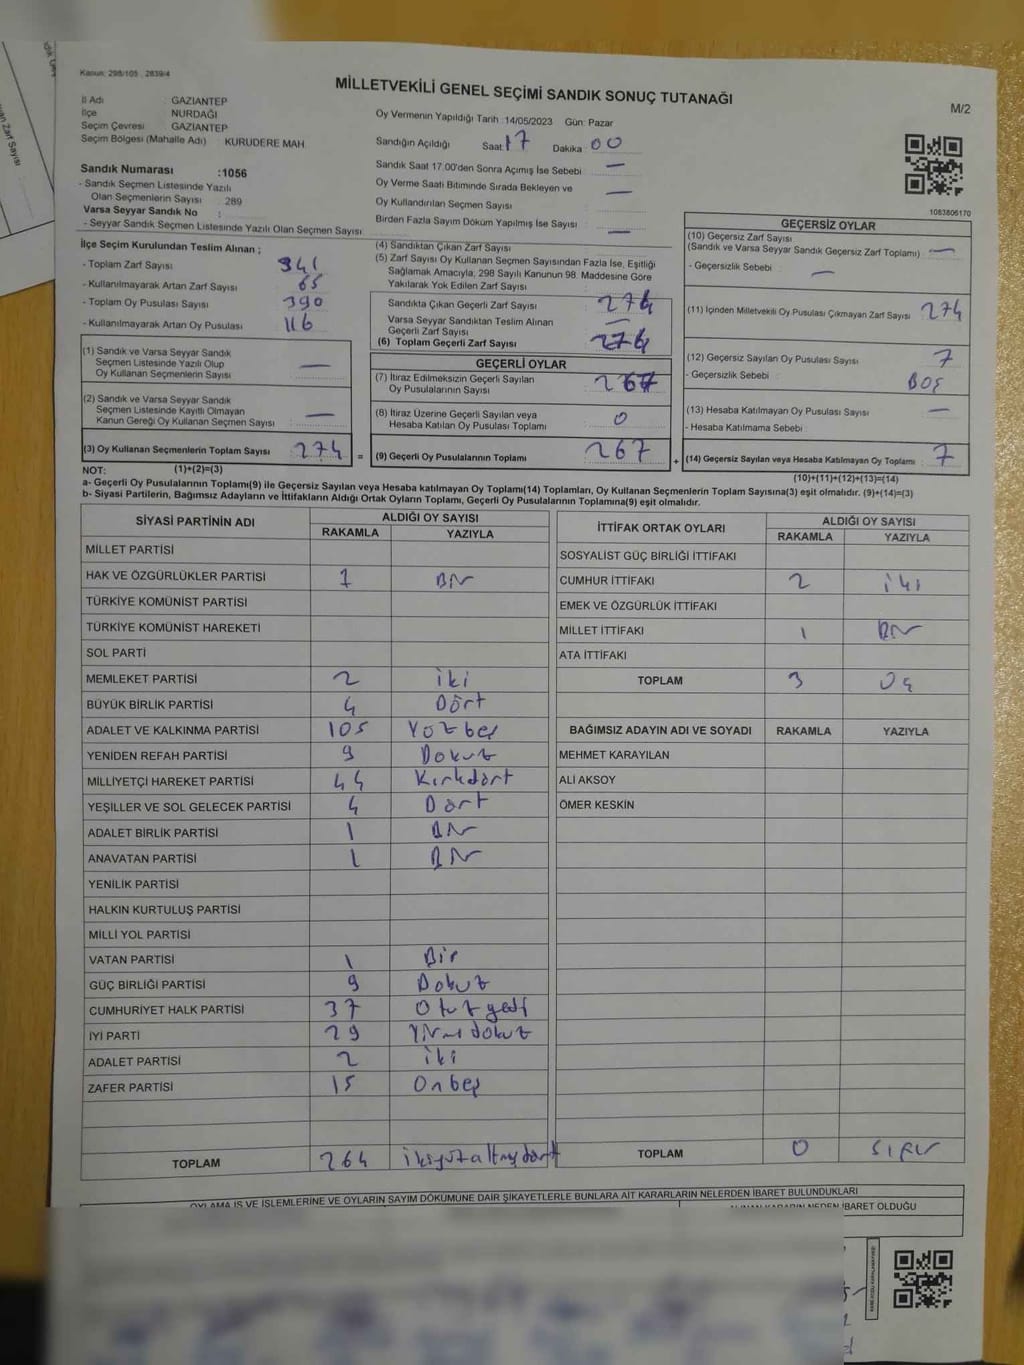 Kanun: 298/105 , 2839/4
MİLLETVEKİLİ GENEL SEÇİMİ SANDIK SONUÇ TUTANAĞI
M/2
İl Adı GAZIANTEP
İlçe NURDAĞI
Seçim Çevresi GAZIANTEP
Seçim Bölgesi (Mahalle Adı) : KURUDERE MAH.
Sandık Numarası :1056
- Sandık Seçmen Listesinde Yazılı
Olan Seçmenlerin Sayısı : 289
Varsa Seyyar Sandık No :
- Seyyar Sandık Seçmen Listesinde Yazılı Olan Seçmen Sayısı :
Oy Vermenin Yapıldığı Tarih :14/05/2023 Gün: Pazar
Sandığın Açıldığı Saat: 17 Dakika : 00
Sandık Saat 17:00'den Sonra Açımış İse Sebebi : —
Oy Verme Saati Bitiminde Sırada Bekleyen ve
Oy Kullandırılan Seçmen Sayısı : —
Birden Fazla Sayım Döküm Yapılmış İse Sayısı : —
1083806170
İlçe Seçim Kurulundan Teslim Alınan ;
- Toplam Zarf Sayısı : 341
- Kullanılmayarak Artan Zarf Sayısı : 65
- Toplam Oy Pusulası Sayısı : 390
- Kullanılmayarak Artan Oy Pusulası : 116
(1) Sandık ve Varsa Seyyar Sandık
Seçmen Listesinde Yazılı Olup
Oy Kullanan Seçmenlerin Sayısı : —
(2) Sandık ve Varsa Seyyar Sandık
Seçmen Listesinde Kayıtlı Olmayan
Kanun Gereği Oy Kullanan Seçmen Sayısı : —
(3) Oy Kullanan Seçmenlerin Toplam Sayısı : 274 =
(4) Sandıktan Çıkan Zarf Sayısı
(5) Zarf Sayısı Oy Kullanan Seçmen Sayısından Fazla İse, Eşitliği
Sağlamak Amacıyla, 298 Sayılı Kanunun 98. Maddesine Göre
Yakılarak Yok Edilen Zarf Sayısı :
Sandıkta Çıkan Geçerli Zarf Sayısı : 274
Varsa Seyyar Sandıktan Teslim Alınan
Geçerli Zarf Sayısı : —
(6) Toplam Geçerli Zarf Sayısı : 274
GEÇERLİ OYLAR
(7) İtiraz Edilmeksizin Geçerli Sayılan
Oy Pusulalarının Sayısı : 267
(8) İtiraz Üzerine Geçerli Sayılan veya
Hesaba Katılan Oy Pusulası Toplamı : 0
(9) Geçerli Oy Pusulalarının Toplamı : 267 +
GEÇERSİZ OYLAR
(10) Geçersiz Zarf Sayısı
(Sandık ve Varsa Seyyar Sandık Geçersiz Zarf Toplamı) : —
- Geçersizlik Sebebi : —
(11) İçinden Milletvekili Oy Pusulası Çıkmayan Zarf Sayısı : 274
(12) Geçersiz Sayılan Oy Pusulası Sayısı : 7
- Geçersizlik Sebebi : BOŞ
(13) Hesaba Katılmayan Oy Pusulası Sayısı : —
- Hesaba Katılmama Sebebi :
(14) Geçersiz Sayılan veya Hesaba Katılmayan Oy Toplamı : 7
NOT: (1)+(2)=(3)
(10)+(11)+(12)+(13)=(14)
a- Geçerli Oy Pusulalarının Toplamı(9) ile Geçersiz Sayılan veya Hesaba katılmayan Oy Toplamı(14) Toplamları, Oy Kullanan Seçmenlerin Toplam Sayısına(3) eşit olmalıdır. (9)+(14)=(3)
b- Siyasi Partilerin, Bağımsız Adayların ve İttifakların Aldığı Ortak Oyların Toplamı, Geçerli Oy Pusulalarının Toplamına(9) eşit olmalıdır.
SİYASİ PARTİNİN ADI ALDIĞI OY SAYISI
RAKAMLA YAZIYLA
MİLLET PARTİSİ
HAK VE ÖZGÜRLÜKLER PARTİSİ 1 Bir
TÜRKİYE KOMÜNİST PARTİSİ
TÜRKİYE KOMÜNİST HAREKETİ
SOL PARTİ
MEMLEKET PARTİSİ 2 iki
BÜYÜK BİRLİK PARTİSİ 4 Dört
ADALET VE KALKINMA PARTİSİ 105 Yüzbeş
YENİDEN REFAH PARTİSİ 9 Dokuz
MİLLİYETÇİ HAREKET PARTİSİ 44 Kırkdört
YEŞİLLER VE SOL GELECEK PARTİSİ 4 Dört
ADALET BİRLİK PARTİSİ 1 Bir
ANAVATAN PARTİSİ 1 Bir
YENİLİK PARTİSİ
HALKIN KURTULUŞ PARTİSİ
MİLLİ YOL PARTİSİ
VATAN PARTİSİ 1 Bir
GÜÇ BİRLİĞİ PARTİSİ 9 Dokuz
CUMHURİYET HALK PARTİSİ 37 Otuzyedi
İYİ PARTİ 29 Yirmidokuz
ADALET PARTİSİ 2 iki
ZAFER PARTİSİ 15 Onbeş
TOPLAM 264 ikiyüzaltmışdört
İTTİFAK ORTAK OYLARI ALDIĞI OY SAYISI
RAKAMLA YAZIYLA
SOSYALIST GÜÇ BİRLİĞİ İTTİFAKI
CUMHUR İTTİFAKI 2 iki
EMEK VE ÖZGÜRLÜK İTTİFAKI
MİLLET İTTİFAKI 1 Bir
ATA İTTİFAKI
TOPLAM 3 Üç
BAĞIMSIZ ADAYIN ADI VE SOYADI RAKAMLA YAZIYLA
MEHMET KARAYILAN
ALİ AKSOY
ÖMER KESKİN
TOPLAM 0 SIFIR
OYLAMA İŞ VE İŞLEMLERİNE VE OYLARIN SAYIM DÖKÜMÜNE DAİR ŞİKAYETLERLE BUNLARA AİT KARARLARIN NELERDEN İBARET BULUNDUKLARI
ALINAN KARARIN NEDEN İBARET OLDUĞU